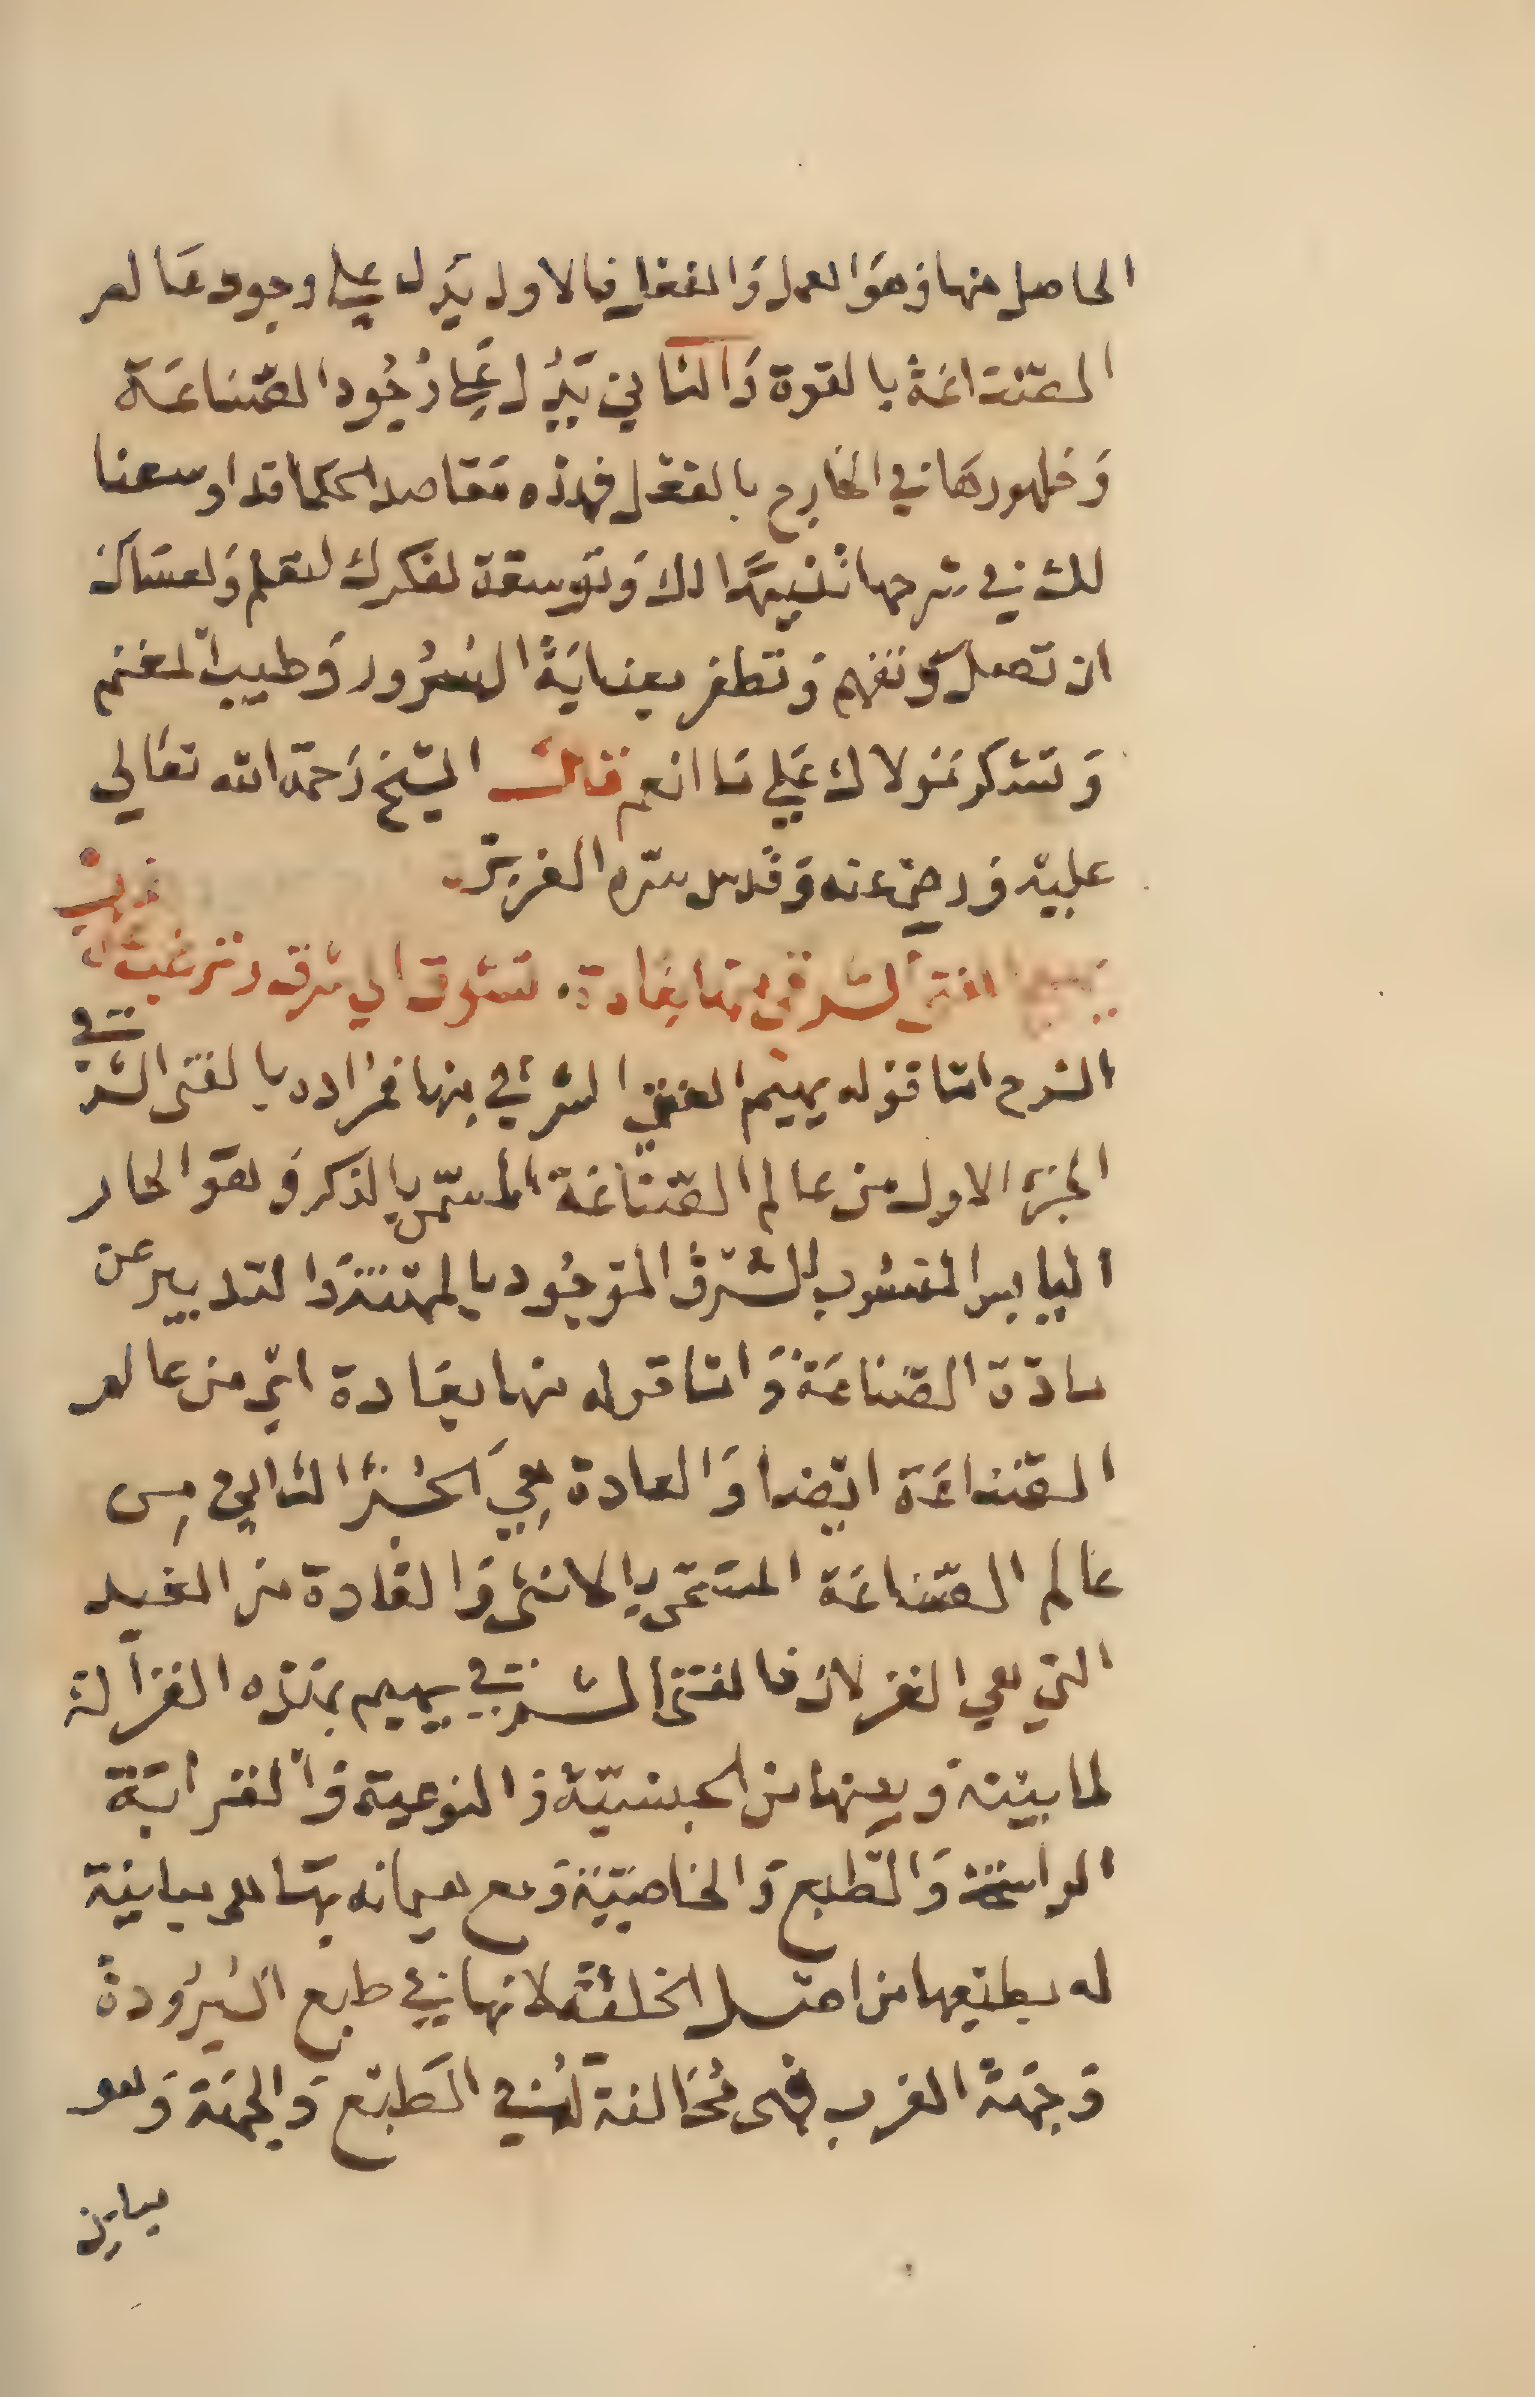 الحاصل منها وهو العمل والفعل فالاول يدل على وجود عالم
الصناعة بالقوة والثاني يدل على وجود الصناعة
وظهورها في الخارج بالفعل فهذه مقاصد الحكما قد اوسعنا
لك في شرحها تنبيها لك وتوسعة لفكرك لتعلم ولعساك
ان تصل وتفهم وتظفر بغاية السرور وطيب المغنم
وتشكر مولاك على ما انعم قال الشيخ رحمة الله تعالى
عليه ورضي عنه وقدس سره العزيز
يهيم الفتى الشرقي منها بغادة تشوق الى شرق وترغب
غرب
الشرح اما قوله يهيم الفتى الشرقي منها فمراده بالفتى الشر
قي
الجزء الاول من عالم الصناعة المسمى بالذكر وهو الحار
اليابس المنسوب للشرق الموجود بالمهنة والتدبير عن
مادة الصناعة واما قوله منها بغادة اي من عالم
الصناعة ايضا والغادة هي الجزء الثاني من
عالم الصناعة المسمى بالانثى والغادة من الغيد
التي هي الغزلان فالفتى الشرقي يهيم بهذه الغزالة
لما بينه وبينها من الجنسية والنوعية والقرابة
الماسة والطبع والخاصية ومع هيمانه بها هي مباينة
له بطبعها من اصل الخلقة لانها في طبع البرودة
وجهة الغرب فهى مخالفة له في الطبع والجهة وهو
مباين